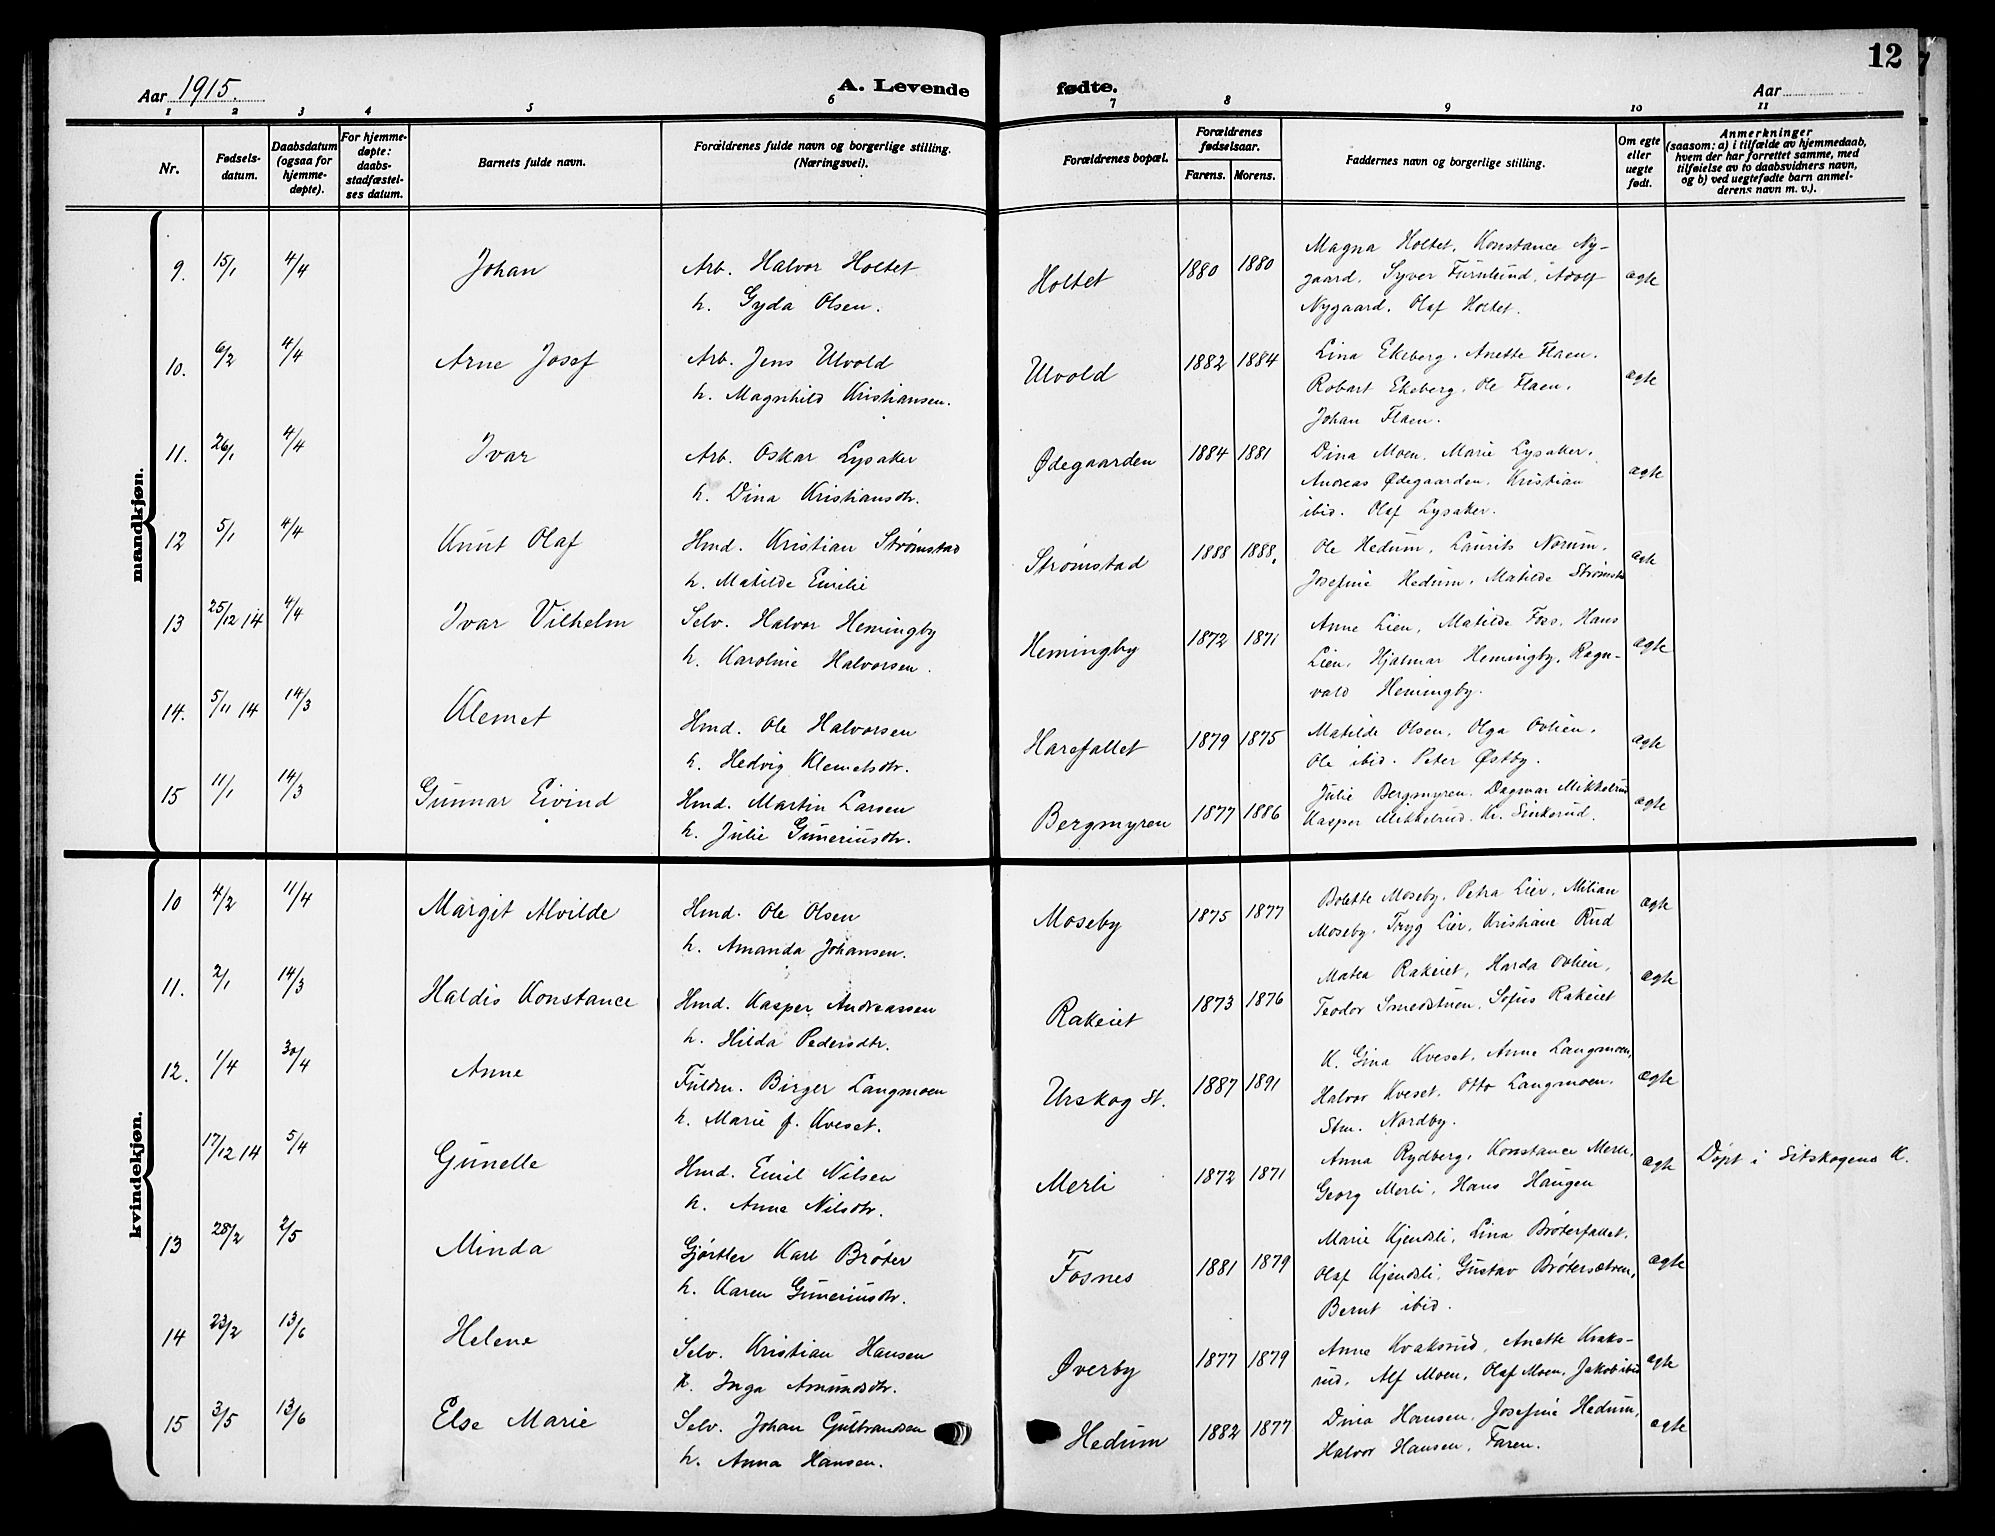 12
Aar 1915.
A. Levende fødte.
Aar
1 2 3 4 5 6 7 8 9 10 11
Nr.
Fødsels-
datum.
Daabsdatum
(ogsaa for
hjemme-
døpte).
For hjemme-
døpte:
daabs-
stadfæstel-
ses datum.
Barnets fulde navn.
Forældrenes fulde navn og borgerlige stilling.
(Næringsvei).
Forældrenes bopæl.
Forældrenes
fødselsaar.
Farens. Morens.
Faddernes navn og borgerlige stilling.
Om egte
eller
uegte
født.
Anmerkninger
(saasom: a) i tilfælde av hjemmedaab,
hvem der har forrettet samme, med
tilføielse av to daabsvidners navn,
og b) ved uegtefødte barn anmel-
derens navn m. v.).
mandkjøn.
9. 15/1 4/4 Johan Arb. Halvor Holtet Holtet 1880 1880 Magna Holtet, Konstance Ny-
h. Gyda Olsen. gaard, Syver Furulund, Adolf ægte
Nygaard, Olaf Holtet.
10. 6/2 4/4 Arne Josef Arb. Jens Ulvold Ulvold 1882 1884 Lina Ekeberg, Anette Flaen.
h. Magnhild Kristiansen. Robart Ekeberg, Ole Flaen, ægte
Johan Flaen.
11. 26/1 4/4 Ivar Arb. Oskar Lysaker Ødegaarden 1884 1881 Dina Moen, Marie Lysaker,
h. Dina Kristiansdtr. Andreas Ødegaarden, Kristian ægte
ibid. Olaf Lysaker.
12 5/1 4/4 Knut Olaf Hmd. Kristian Strømstad Strømstad 1888 1888. Ole Hedum, Laurits Norum,
h. Matilde Emilie Josefine Hedum, Matilde Strømstad ægte
13 25/12 14 4/4 Ivar Vilhelm Selv. Halvor Hemingby Hemingby 1872 1871 Anne Lien, Matilde Foss, Hans
h. Karoline Halvorsen. Lien, Hjalmar Hemingby, Ragn- ægte
vald Hemingby.
14. 5/11 14 14/3 Klemet Hmd. Ole Halvorsen Harefallet 1879 1875 Matilde Olsen, Olga Ovlien,
h. Hedvig Klemetsdtr. Ole ibid. Peter Østby. ægte
15 11/1 14/3 Gunnar Eivind Hmd. Martin Larsen Bergmyren 1877 1886 Julie Bergmyren, Dagmar Mikkelrud
h. Julie Guneriusdtr. Kasper Mikkelrud. Kr. Sinkerud. ægte
kvindekjøn.
10 4/2 11/4 Margit Alvilde Hmd. Ole Olsen Moseby 1875 1877 Bolette Moseby, Petra Lier, Milian
h. Amanda Johansen. Moseby, Tryg Lier, Kristiane Rud ægte
11. 2/1 14/3 Haldis Konstance Hmd. Kasper Andreassen Rakeiet 1873 1876 Matea Rakeiet, Harda Ovlien,
h. Hilda Pedersdtr. Teodor Smedstuen, Sofus Rakeiet ægte
12. 1/4 30/4 Anne Fuldm. Birger Langmoen Urskog st. 1887 1891 K. Gina Kveset, Anne Langmoen,
h. Marie f. Kveset. Halvor Kveset, Otto Langmoen. ægte
Stm. Nordby.
17/12 14 5/4 Gunelle Hmd. Emil Nilsen Merli 1872 1871 Anna Rydberg, Konstance Merli,
h. Anna Nilsdtr. Georg Merli, Hans Haugen ægte Døpt i Setskogens K.
13 28/2 2/5 Minda Gjørtler Karl Brøter Fosnes 1881 1879 Marie Kjendsli, Lina Brøterfallet,
h. Karen Guneriusdtr. Olaf Kjendsli, Gustav Brøtersætren, ægte
Bernt ibid.
14 23/2 13/6 Helene Selv. Kristian Hansen Øverby 1877 1879 Anne Kraksrud, Anette Kraks-
h. Inga Amundsdtr. rud, Alf Moen, Olaf Moen, Jakob ibid ægte
15 3/5 13/6 Else Marie Selv. Johan Gulbrandsen Hedum 1882 1877 Dina Hansen, Josefine Hedum,
h. Anna Hansen. Halvor Hansen, Faren. ægte